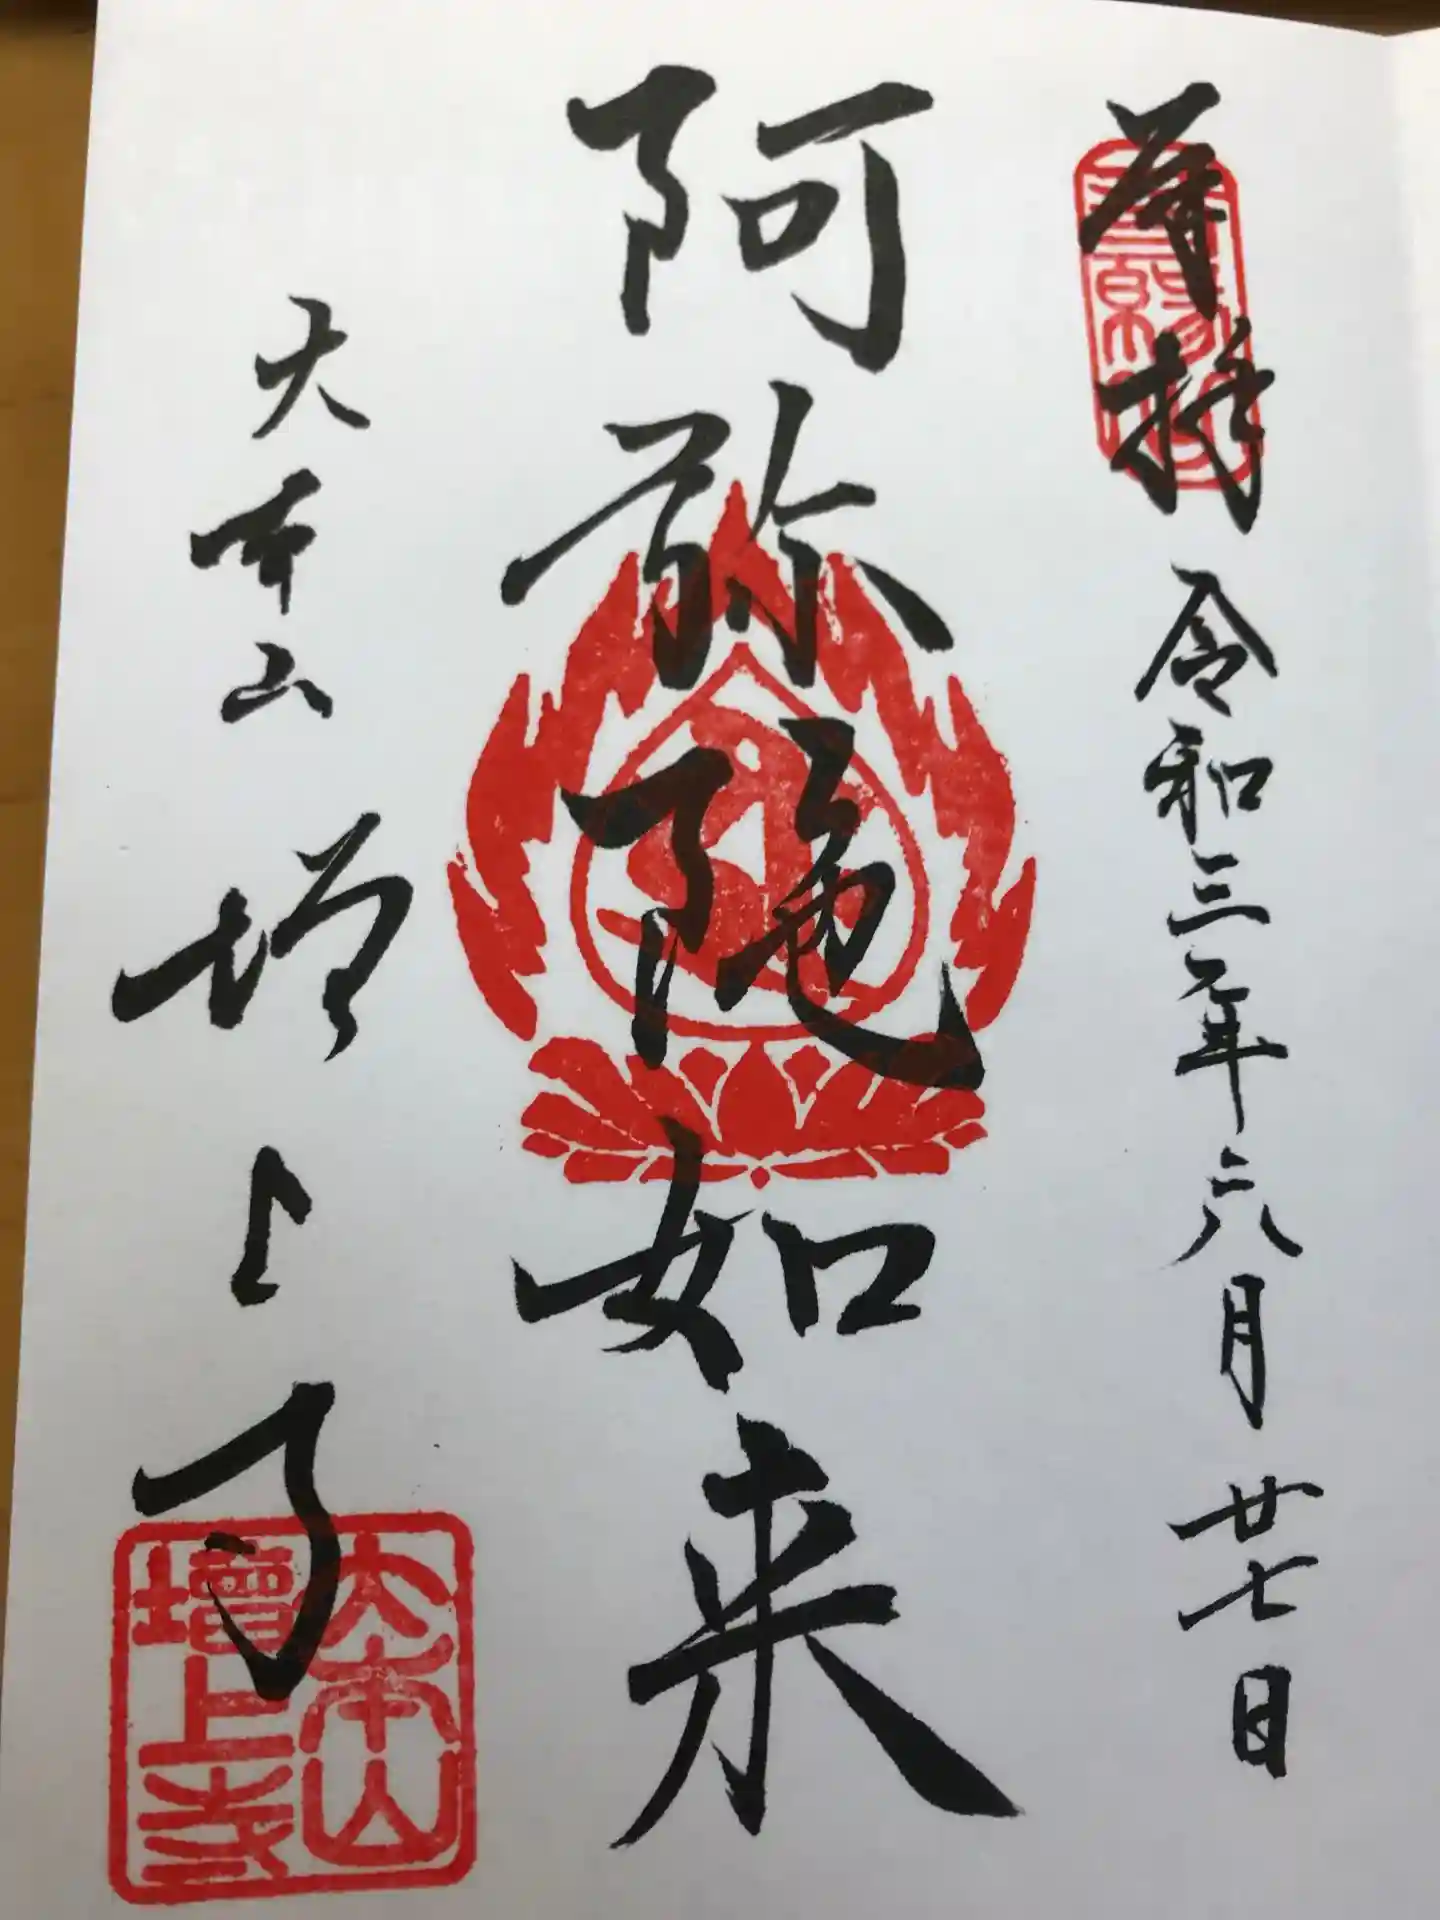 奉拝 令和三年六月廿七日
三縁山
阿弥陀如来
大本山 増上寺
大本山
增上寺